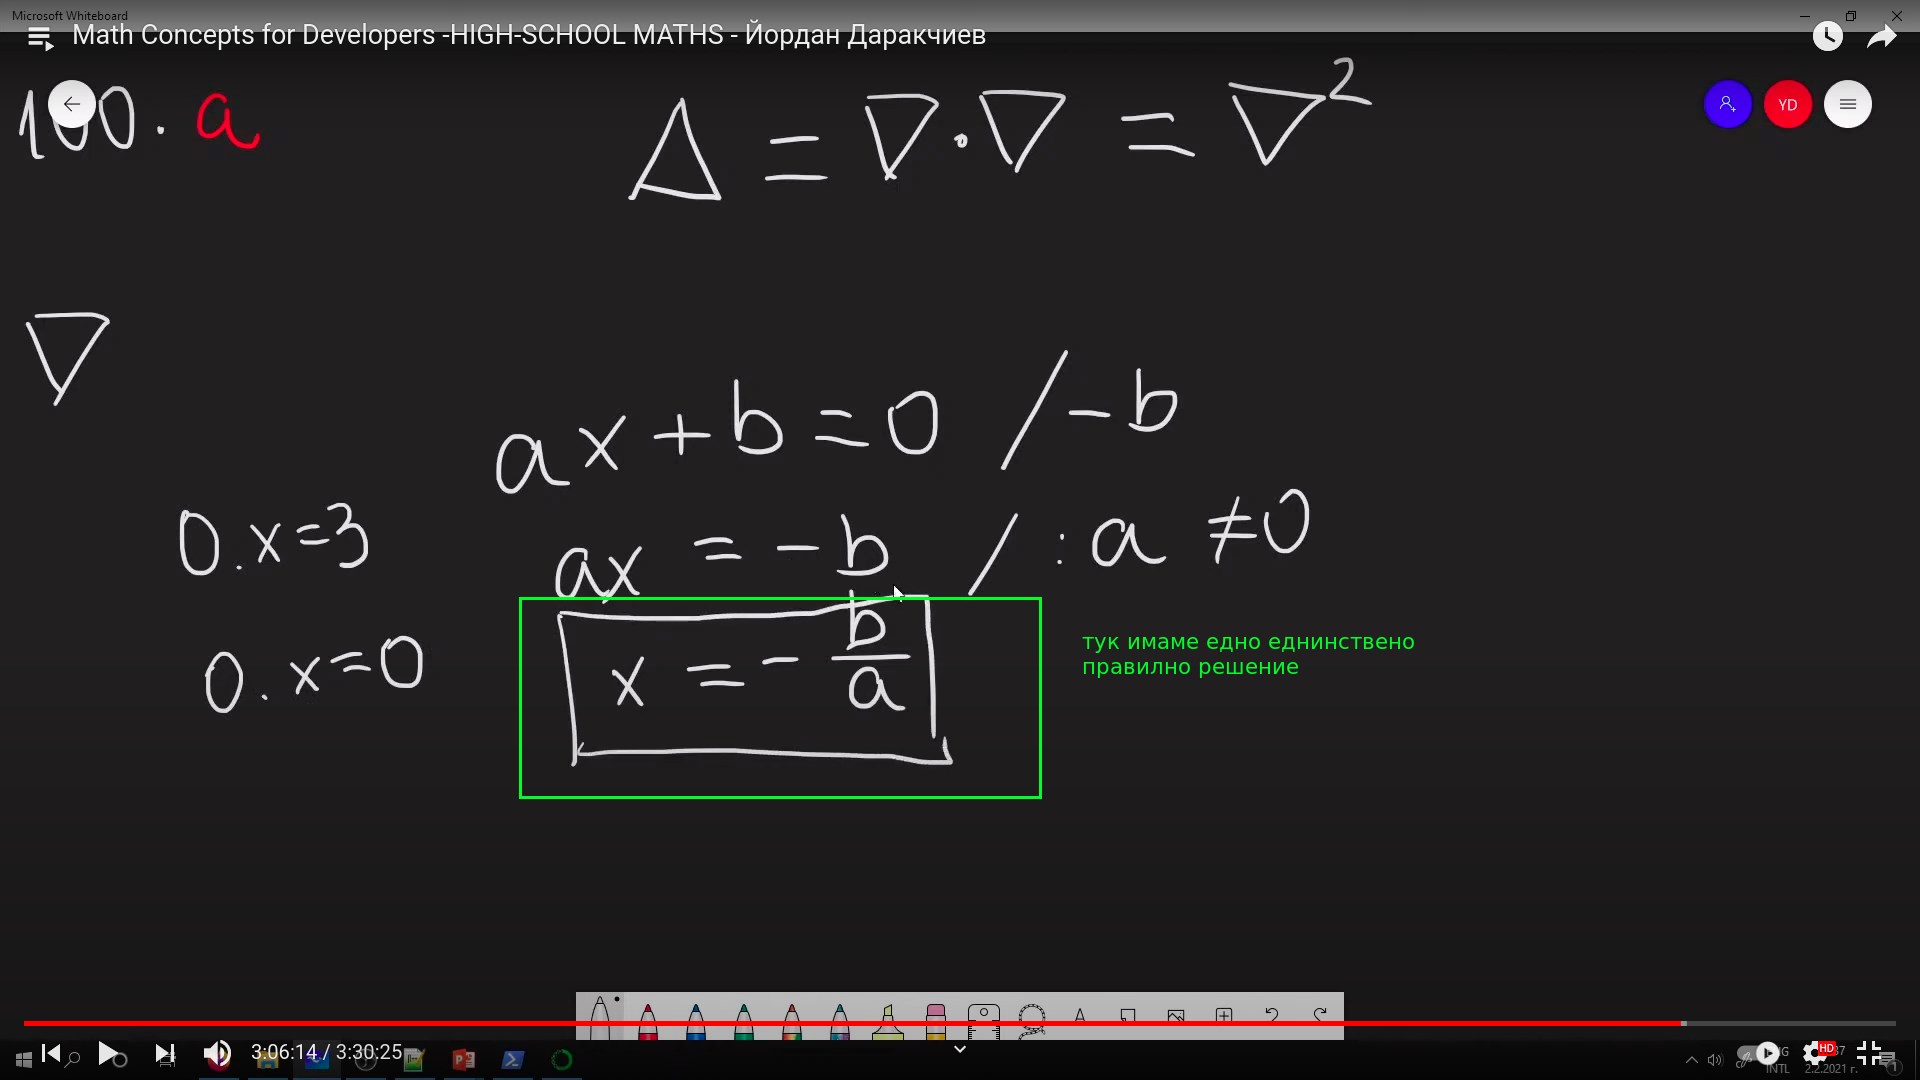 Microsoft Whiteboard
Math Concepts for Developers -HIGH-SCHOOL MATHS - Йордан Даракчиев
YD
100 . a
Δ = ∇ · ∇ = ∇²
∇
ax + b = 0 / - b
0 . x = 3
ax = - b / : a ≠ 0
0 . x = 0
x = - b/a
тук имаме едно еднинствено
правилно решение
3:06:14 / 3:30:25
HD
INTL
2.2.2021 г.
1